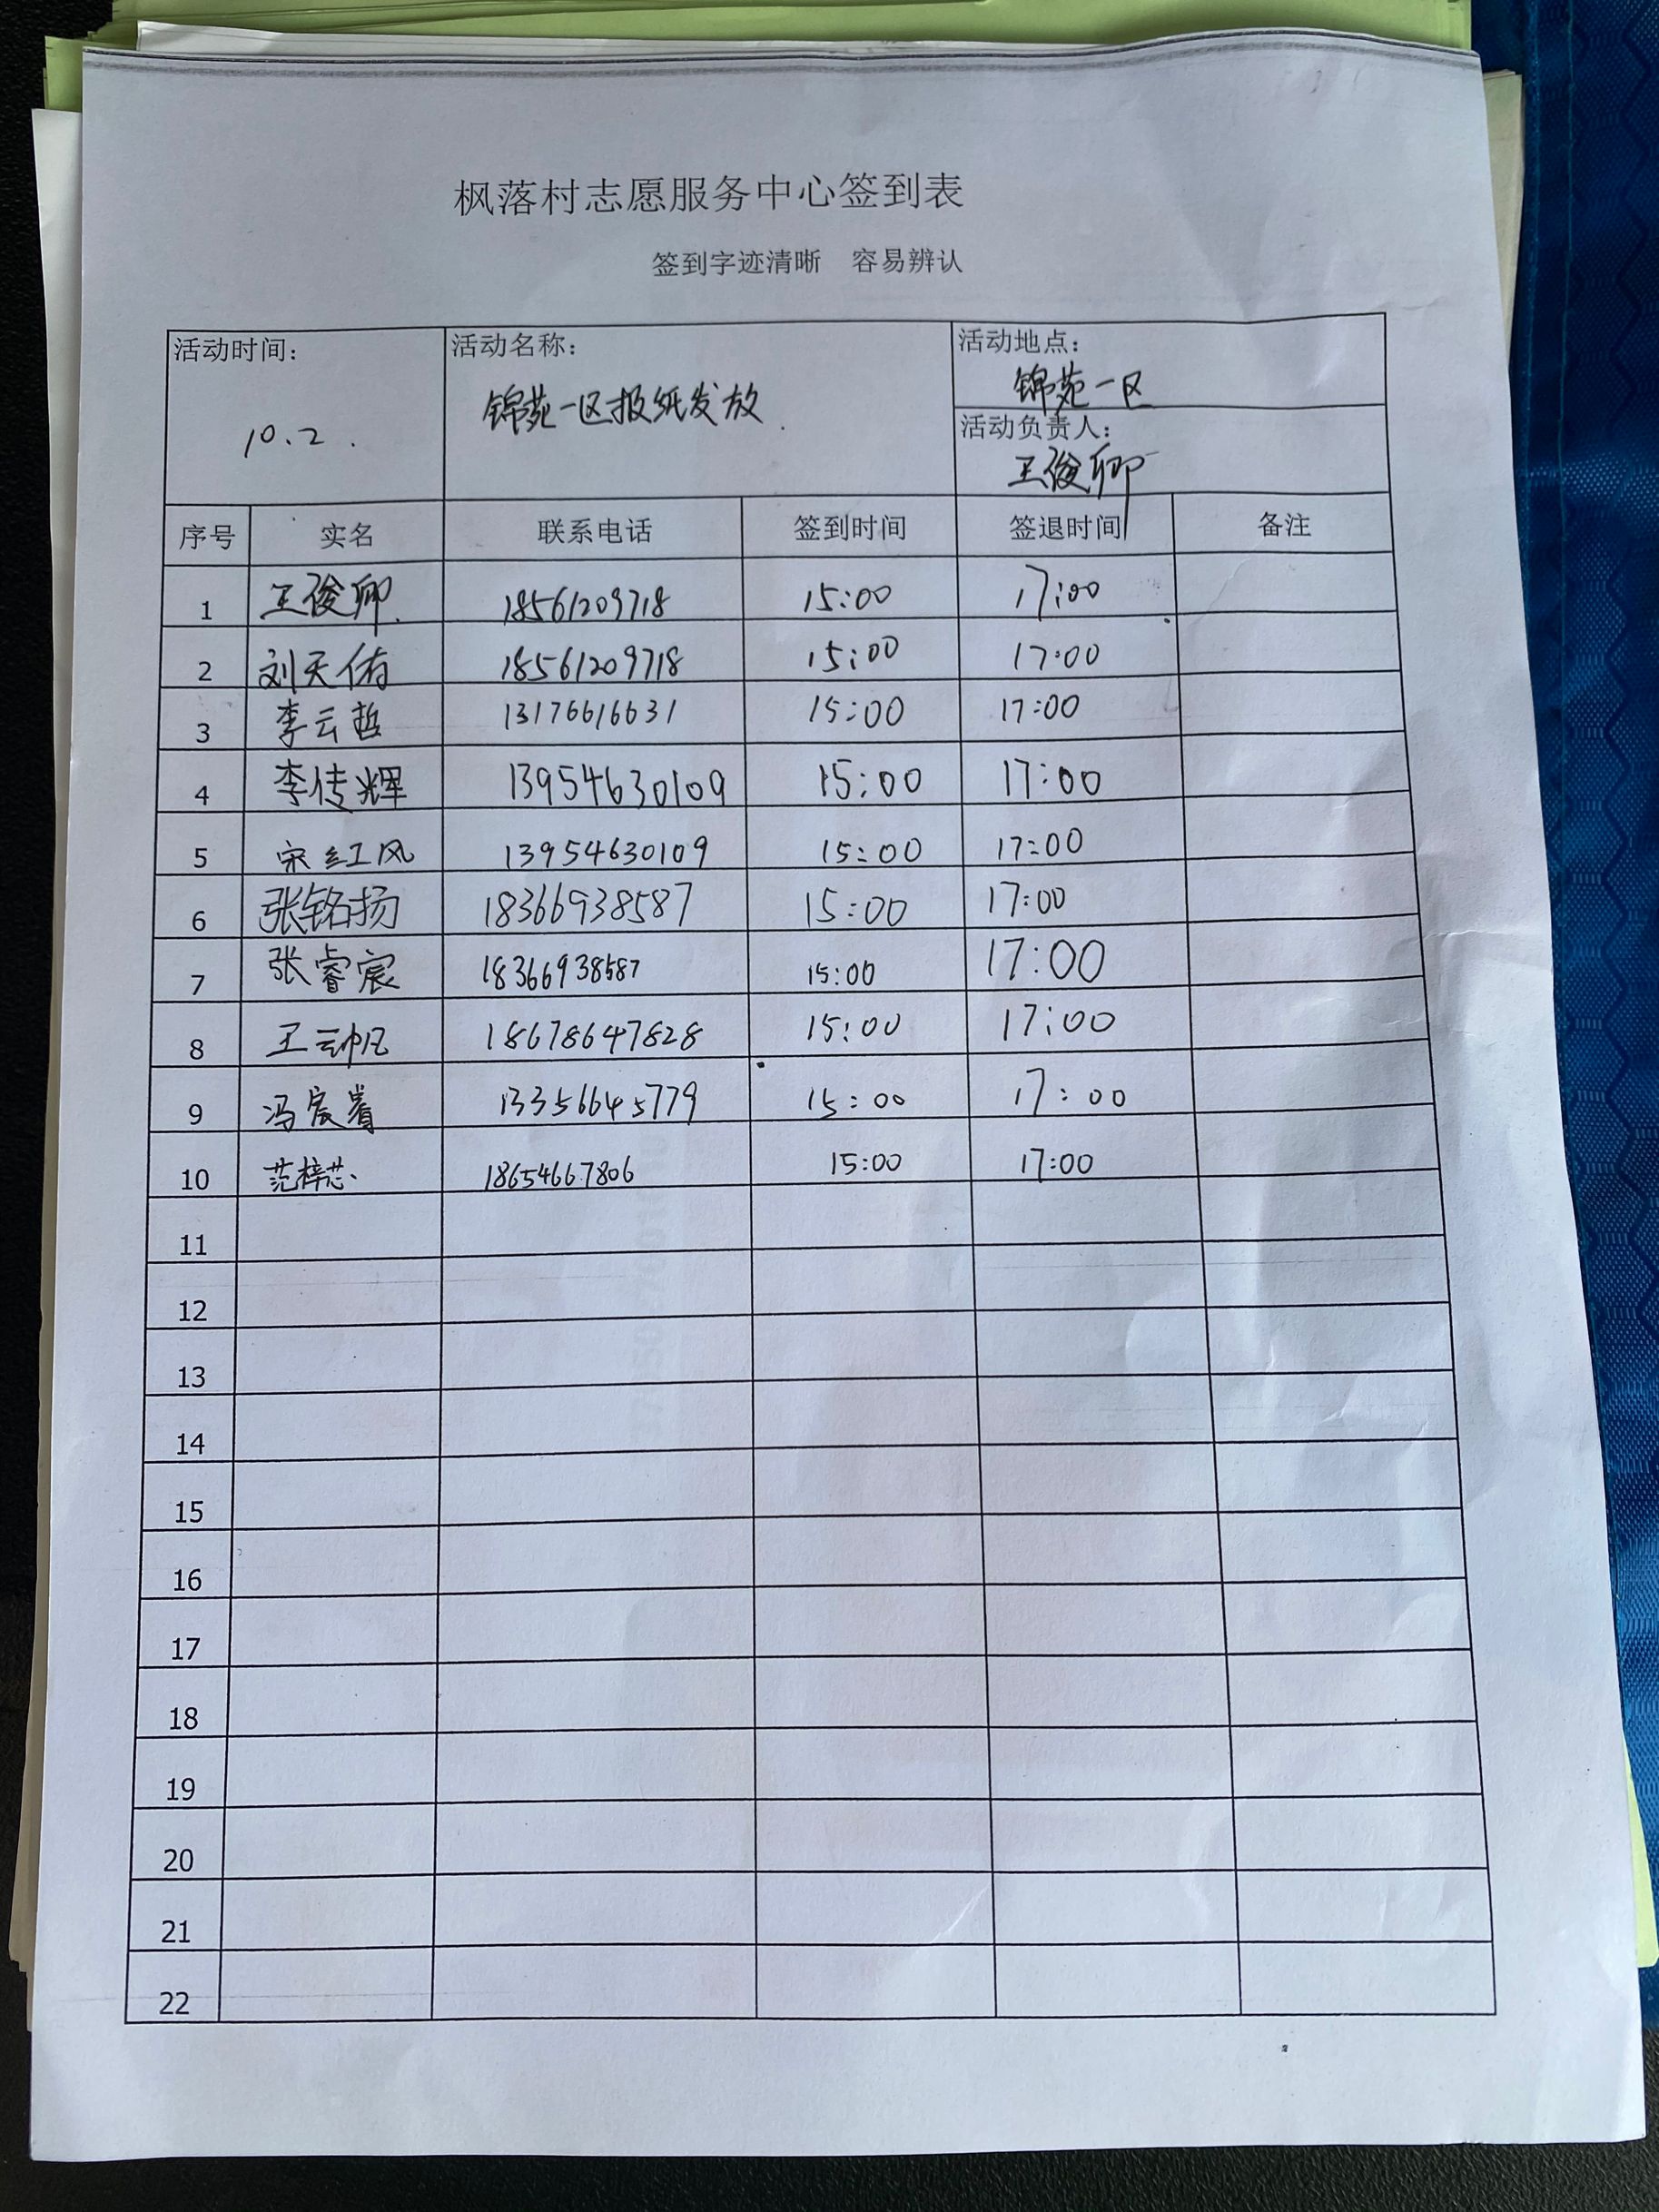 枫落村志愿服务中心签到表
签到字迹清晰 容易辨认
活动时间: 活动名称: 活动地点:
10.2. 锦苑一区报纸发放 锦苑一区
活动负责人:
王俊卿
序号 实名 联系电话 签到时间 签退时间 备注
1 王俊卿 18561209718 15:00 17:00
2 刘天佑 18561209718 15:00 17:00
3 李云哲 13176616631 15:00 17:00
4 李传辉 13954630109 15:00 17:00
5 宋红风 13954630109 15:00 17:00
6 张铭扬 18366938587 15:00 17:00
7 张睿宸 18366938587 15:00 17:00
8 王云帆 18678647828 15:00 17:00
9 冯宸 13356645779 15:00 17:00
10 范梓芯 18654667806 15:00 17:00
11
12
13
14
15
16
17
18
19
20
21
22